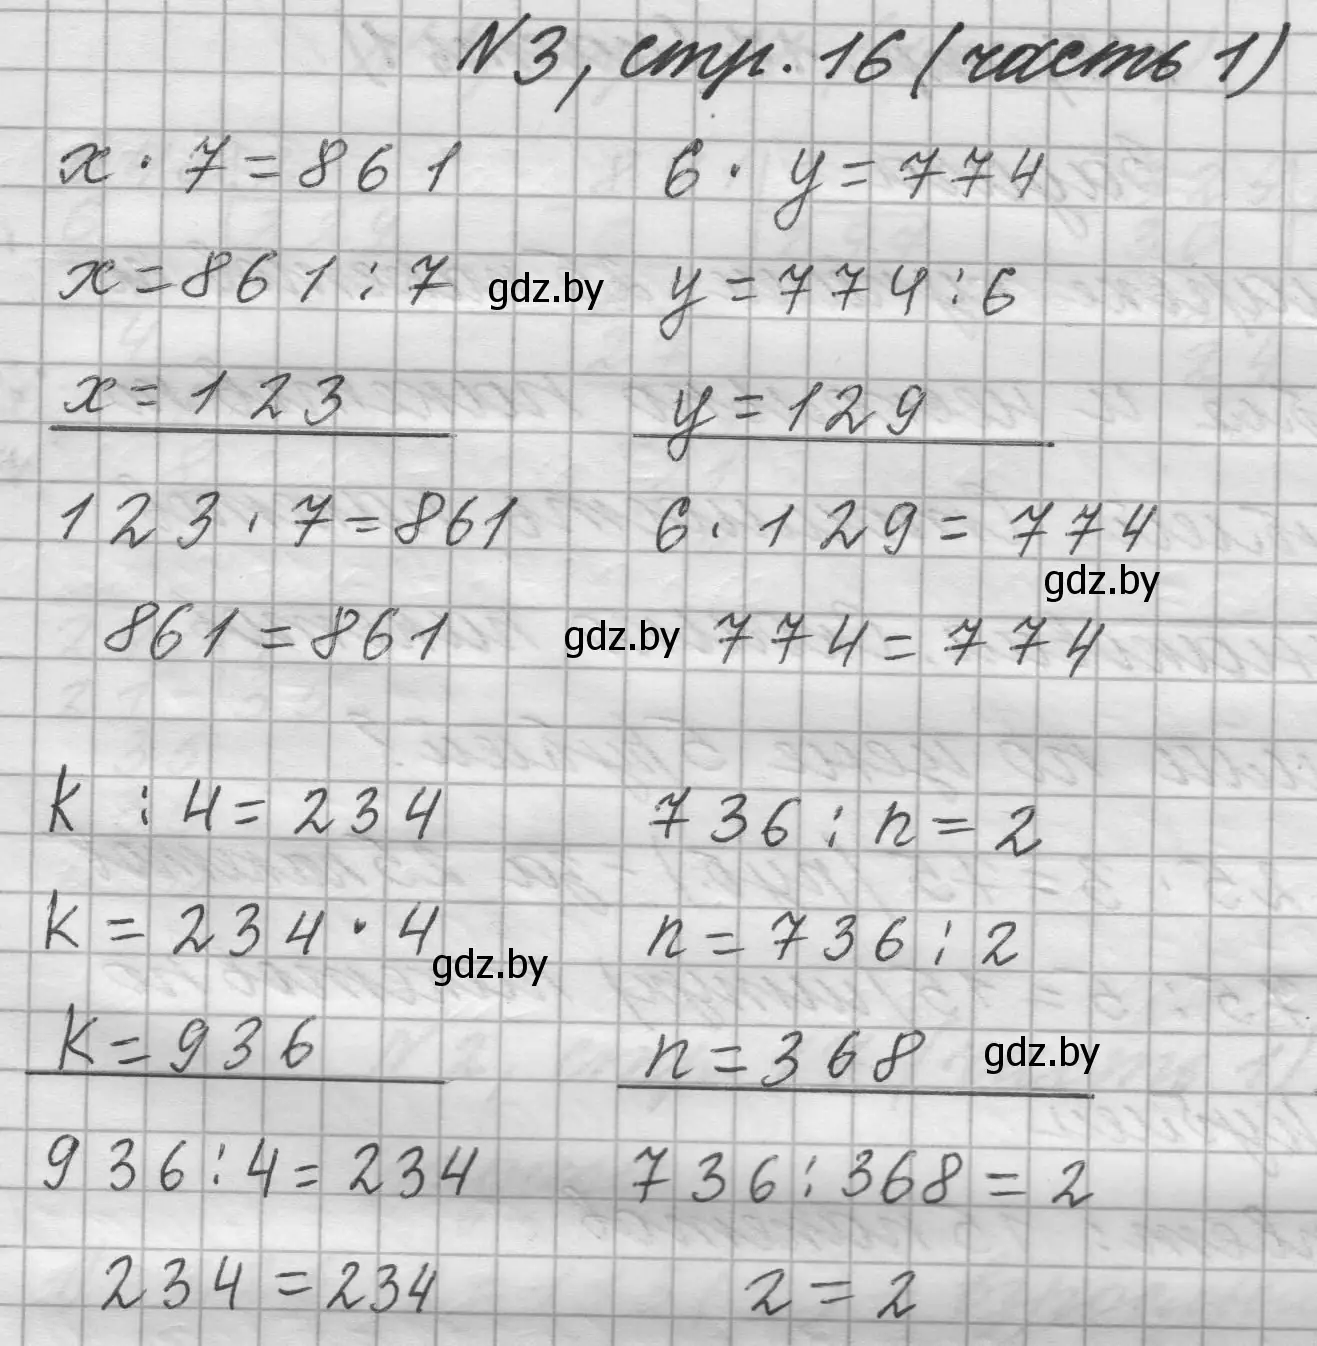 N3, стр. 16 (часть 1)
x · 7 = 861
x = 861 : 7
x = 123
123 · 7 = 861
861 = 861
6 · y = 774
y = 774 : 6
y = 129
6 · 129 = 774
774 = 774
k : 4 = 234
k = 234 · 4
k = 936
936 : 4 = 234
234 = 234
736 : n = 2
n = 736 : 2
n = 368
736 : 368 = 2
2 = 2
gdz.by
gdz.by
gdz.by
gdz.by
gdz.by